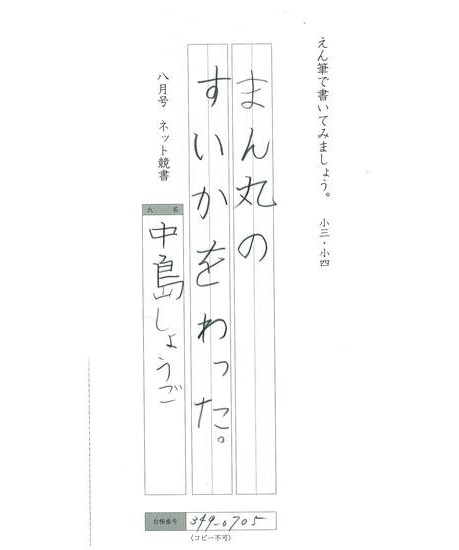 えん筆で書いてみましょう。 小三・小四
まん丸の
すいかをわった。
八月号 ネット競書
氏名
中島しょうご
台帳番号 349-0705
(コピー不可)